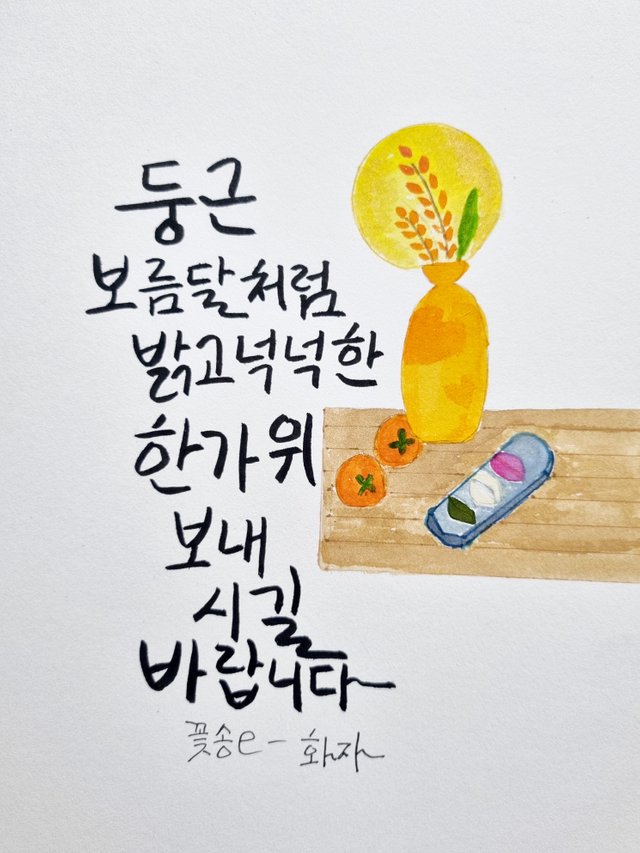 둥근
보름달처럼
밝고넉넉한
한가위
보내
시길
바랍니다~
꽃송e- 화자